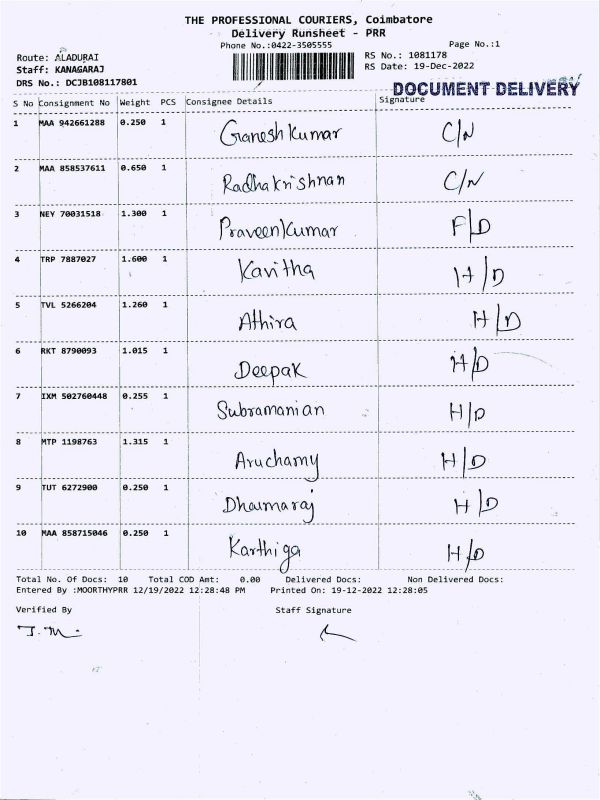 THE PROFESSIONAL COURIERS, Coimbatore
Delivery Runsheet - PRR
Phone No.:0422-3505555 Page No.:1
Route: ALADURAI RS No.: 1081178
Staff: KANAGARAJ RS Date: 19-Dec-2022
DRS No.: DCJB108117801
DOCUMENT DELIVERY
S No Consignment No Weight PCS Consignee Details Signature
1 MAA 942661288 0.250 1 Ganesh Kumar C/N
2 MAA 858537611 0.650 1 Radhakrishnan C/N
3 NEY 70031518 1.300 1 Praveen Kumar F/D
4 TRP 7887027 1.600 1 Kavitha H/D
5 TVL 5266204 1.260 1 Athira H/D
6 RKT 8790093 1.015 1 Deepak H/D
7 IXM 502760448 0.255 1 Subramanian H/D
8 MTP 1198763 1.315 1 Aruchamy H/D
9 TUT 6272900 0.250 1 Dharmaraj H/D
10 MAA 858715046 0.250 1 Karthiga H/D
Total No. Of Docs: 10 Total COD Amt: 0.00 Delivered Docs: Non Delivered Docs:
Entered By :MOORTHYPRR 12/19/2022 12:28:48 PM Printed On: 19-12-2022 12:28:05
Verified By Staff Signature